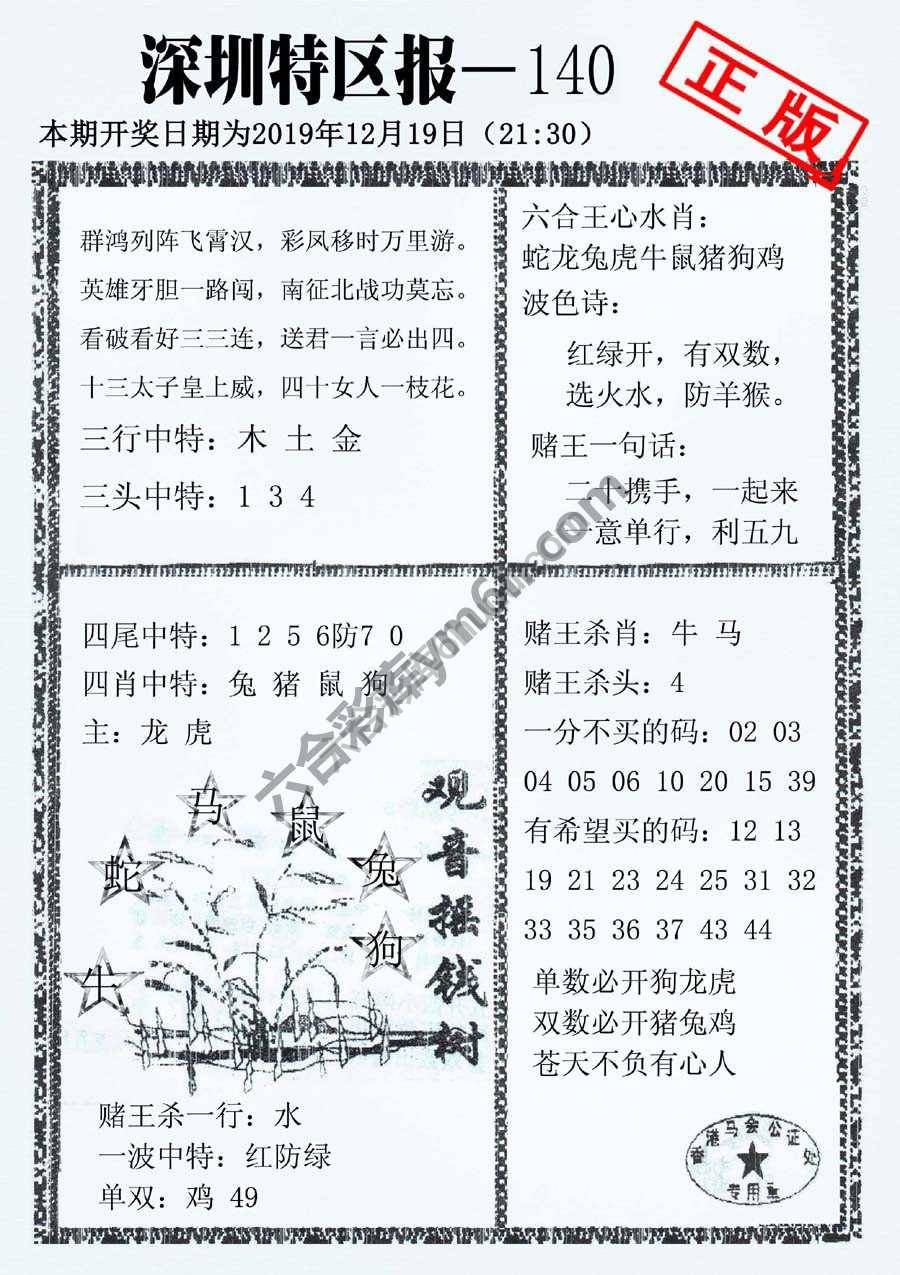 深圳特区报—140
正版
本期开奖日期为2019年12月19日（21:30）
群鸿列阵飞霄汉，彩凤移时万里游。
英雄牙胆一路闯，南征北战功莫忘。
看破看好三三连，送君一言必出四。
十三太子皇上威，四十女人一枝花。
三行中特：木 土 金
三头中特：1 3 4
六合王心水肖：
蛇龙兔虎牛鼠猪狗鸡
波色诗：
红绿开，有双数，
选火水，防羊猴。
赌王一句话：
二十携手，一起来
一意单行，利五九
四尾中特：1 2 5 6防7 0
四肖中特：兔 猪 鼠 狗
主：龙 虎
马
鼠
蛇
兔
狗
牛
观音摇钱树
赌王杀一行：水
一波中特：红防绿
单双：鸡 49
赌王杀肖：牛 马
赌王杀头：4
一分不买的码：02 03
04 05 06 10 20 15 39
有希望买的码：12 13
19 21 23 24 25 31 32
33 35 36 37 43 44
单数必开狗龙虎
双数必开猪兔鸡
苍天不负有心人
香港马会公证处
专用章
六合彩库ym6.com